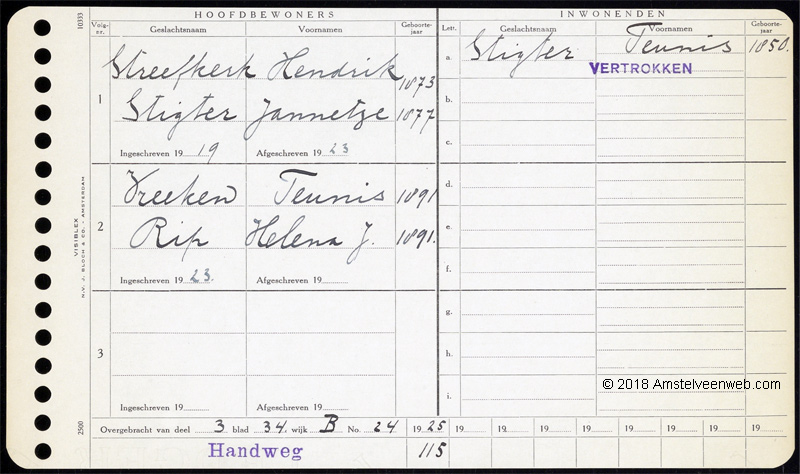 HOOFDBEWONERS
Volg-nr. Geslachtsnaam Voornamen Geboorte-jaar
1
Streefkerk Hendrik 1873
Stigter Jannetje 1877
Ingeschreven 19 19 Afgeschreven 19 23
2
Vreeken Teunis 1891
Rip Helena J. 1891.
Ingeschreven 19 23. Afgeschreven 19
3
Ingeschreven 19 Afgeschreven 19
INWONENDEN
Lett. Geslachtsnaam Voornamen Geboorte-jaar
a. Stigter Teunis 1850.
VERTROKKEN
b.
c.
d.
e.
f.
g.
h.
i.
© 2018 Amstelveenweb.com
Overgebracht van deel 3 blad 34, wijk B No. 24 19 25 19 19 19 19 19 19 19 19
Handweg 115
10333
VISIBLEX
N.V. J. BLOCH & CO. - AMSTERDAM
2500